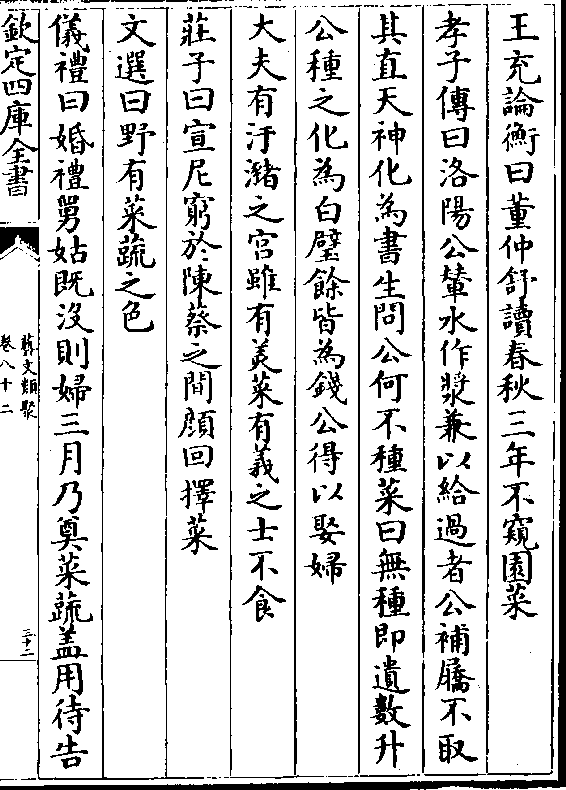 王充論衡曰董仲舒讀春秋三年不窺園菜
孝子傳曰洛陽公輦水作漿兼以給過者公補屩不取
其直天神化為書生問公何不種菜曰無種即遺數升
公種之化為白璧餘皆為錢公得以娶婦
大夫有汙瀦之宫雖有美菜有義之士不食
莊子曰宣尼窮於陳蔡之間顔回擇菜
文選曰野有菜蔬之色
儀禮曰婚禮舅姑既沒則婦三月乃奠菜蔬盖用待告
欽定四庫全書
藝文類聚
卷八十二
三十二